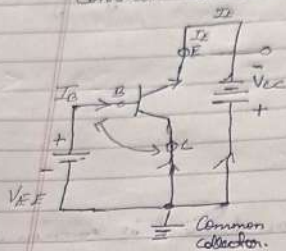 IE
IE
E
IB
B
-
VCC
+
+
C
-
VEE
Common
collector.